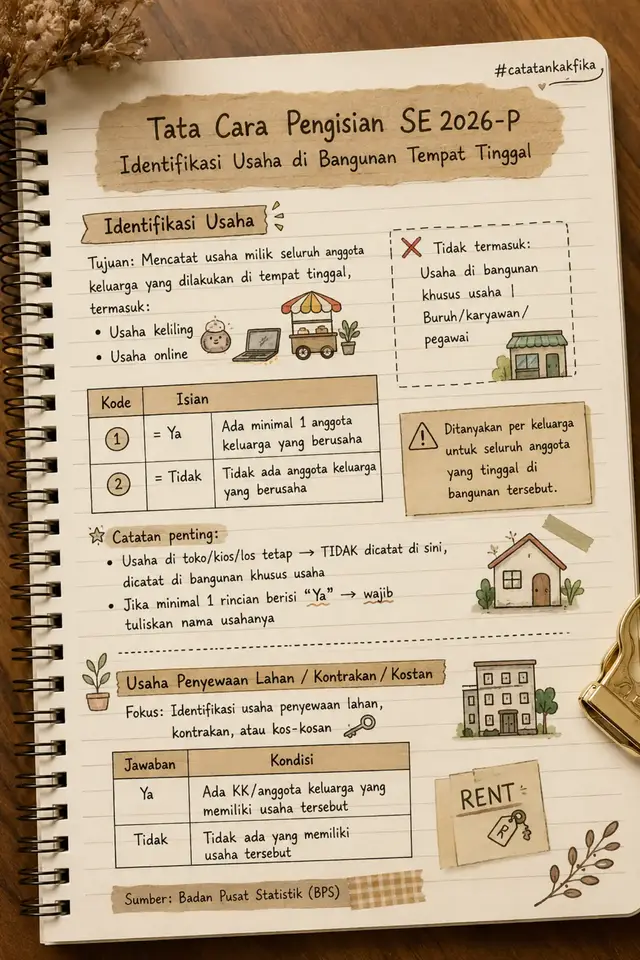 #catatankakfika
Tata Cara Pengisian SE 2026-P
Identifikasi Usaha di Bangunan Tempat Tinggal
Identifikasi Usaha
Tujuan: Mencatat usaha milik seluruh anggota
keluarga yang dilakukan di tempat tinggal,
termasuk:
• Usaha keliling
• Usaha online
Tidak termasuk:
Usaha di bangunan
khusus usaha |
Buruh/karyawan/
pegawai
Kode Isian
1 = Ya Ada minimal 1 anggota
keluarga yang berusaha
2 = Tidak Tidak ada anggota keluarga
yang berusaha
Ditanyakan per keluarga
untuk seluruh anggota
yang tinggal di
bangunan tersebut.
Catatan penting:
• Usaha di toko/kios/los tetap → TIDAK dicatat di sini,
dicatat di bangunan khusus usaha
• Jika minimal 1 rincian berisi “Ya” → wajib
tuliskan nama usahanya
Usaha Penyewaan Lahan / Kontrakan / Kostan
Fokus: Identifikasi usaha penyewaan lahan,
kontrakan, atau kos-kosan
Jawaban Kondisi
Ya Ada KK/anggota keluarga yang
memiliki usaha tersebut
Tidak Tidak ada yang memiliki
usaha tersebut
RENT
Sumber: Badan Pusat Statistik (BPS)